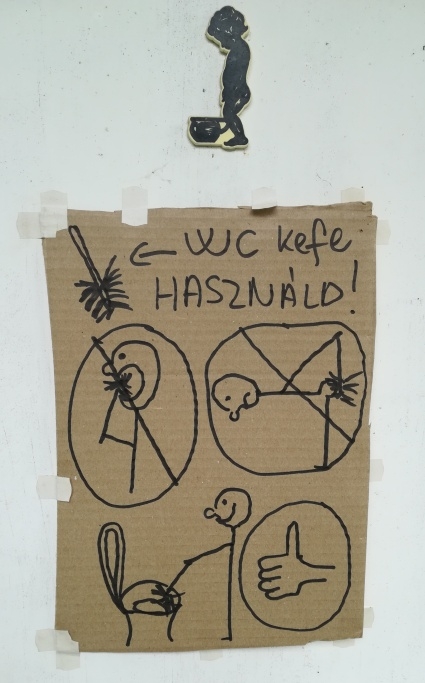 ← WC kefe
HASZNÁLD!